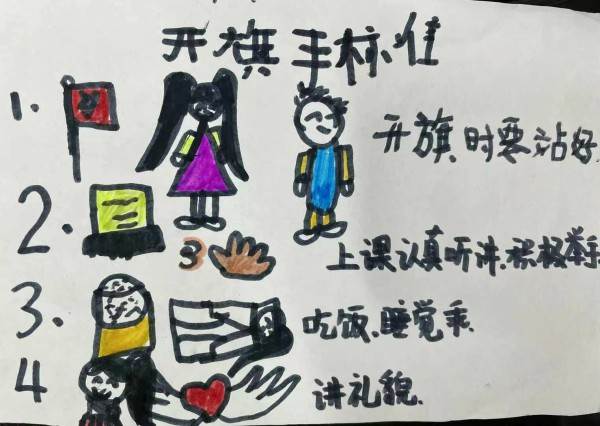 升旗手标准
1. 升旗时要站好
2. 3 上课认真听讲、积极举手
3. 吃饭、睡觉乖
4 讲礼貌.